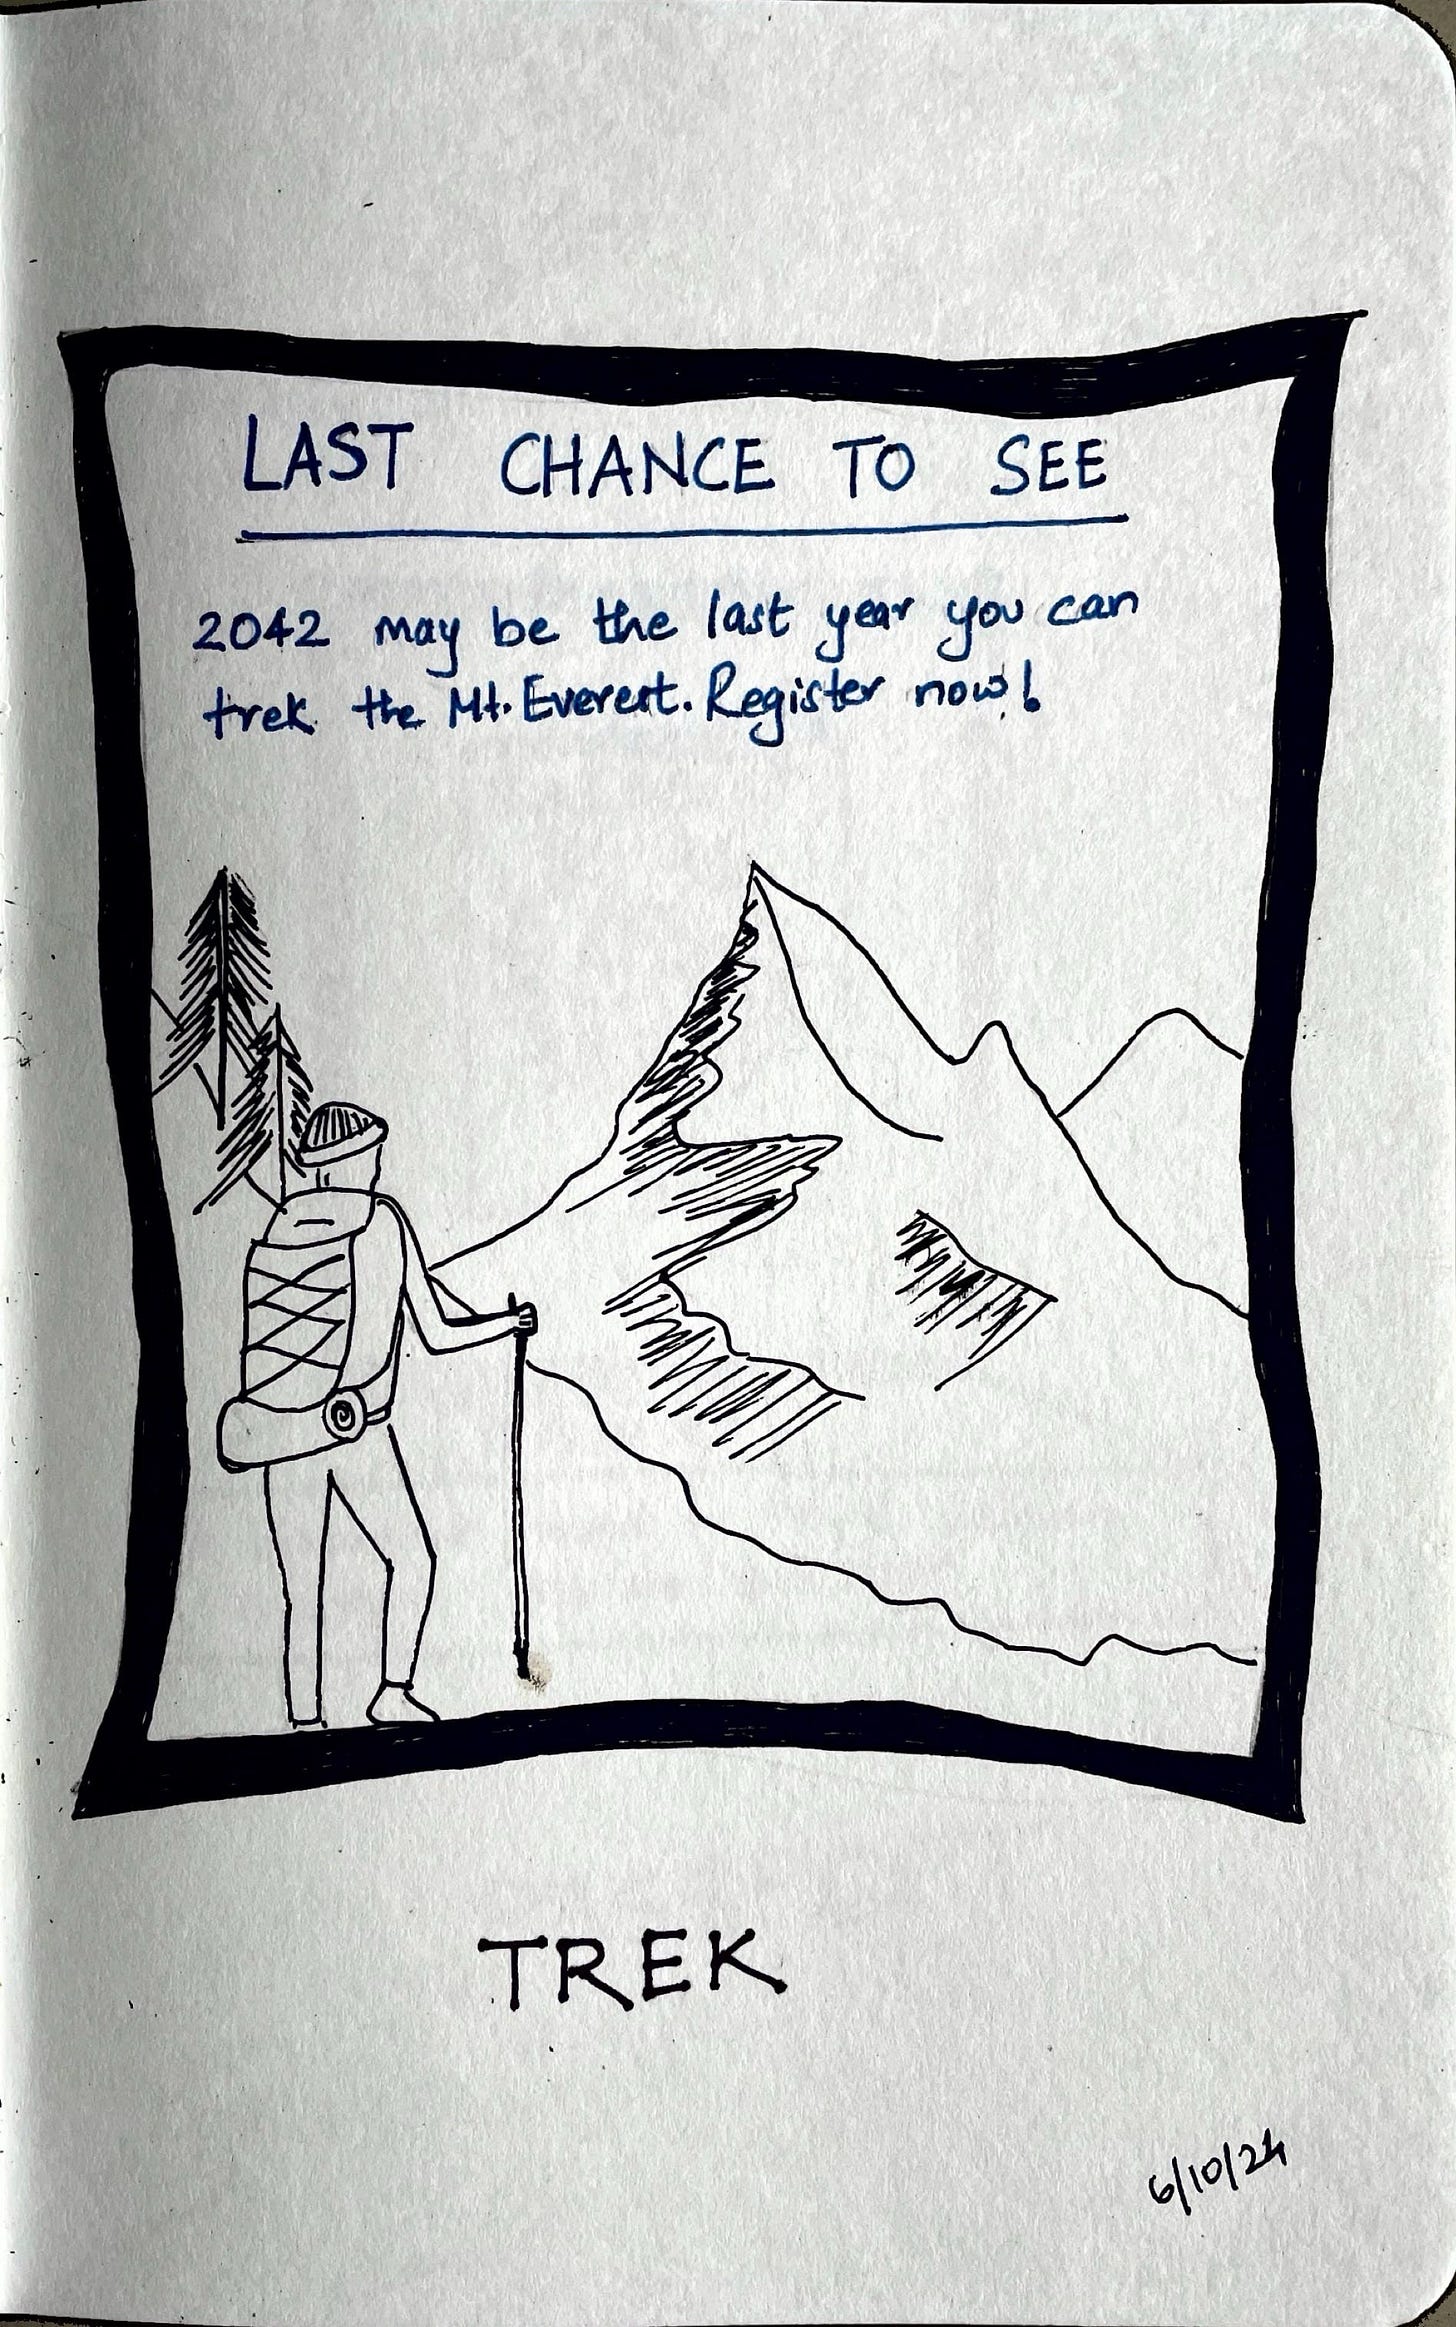 LAST CHANCE TO SEE
2042 may be the last year you can
trek the Mt. Everest. Register now!
TREK
6/10/24